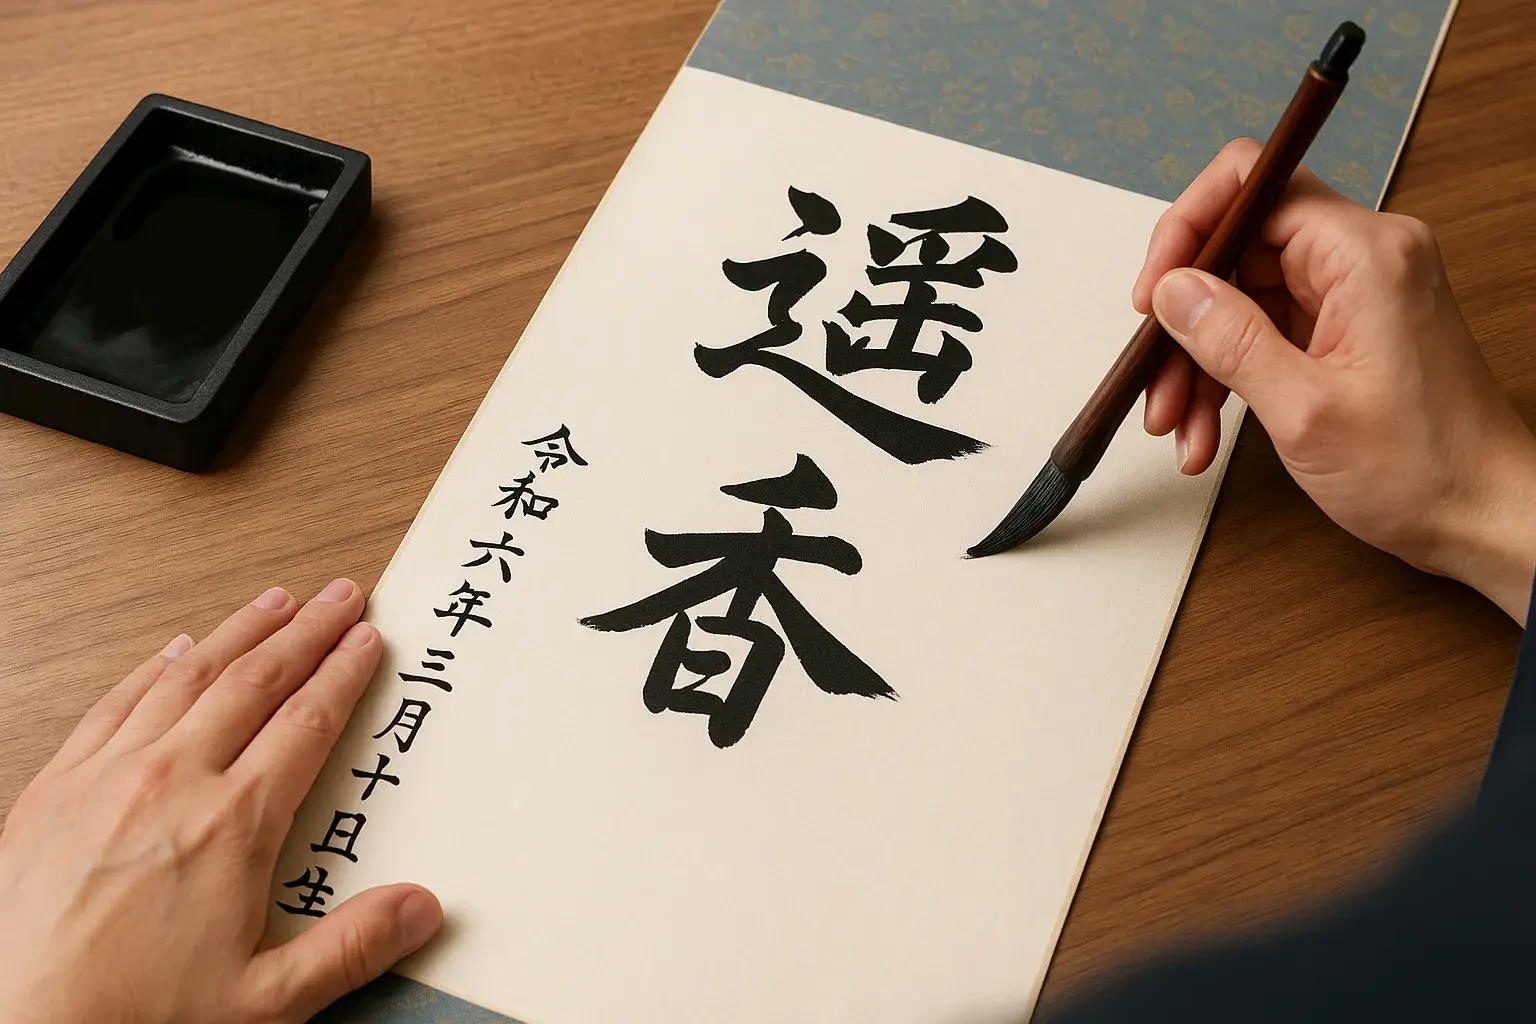 遥香
令和六年三月十日生